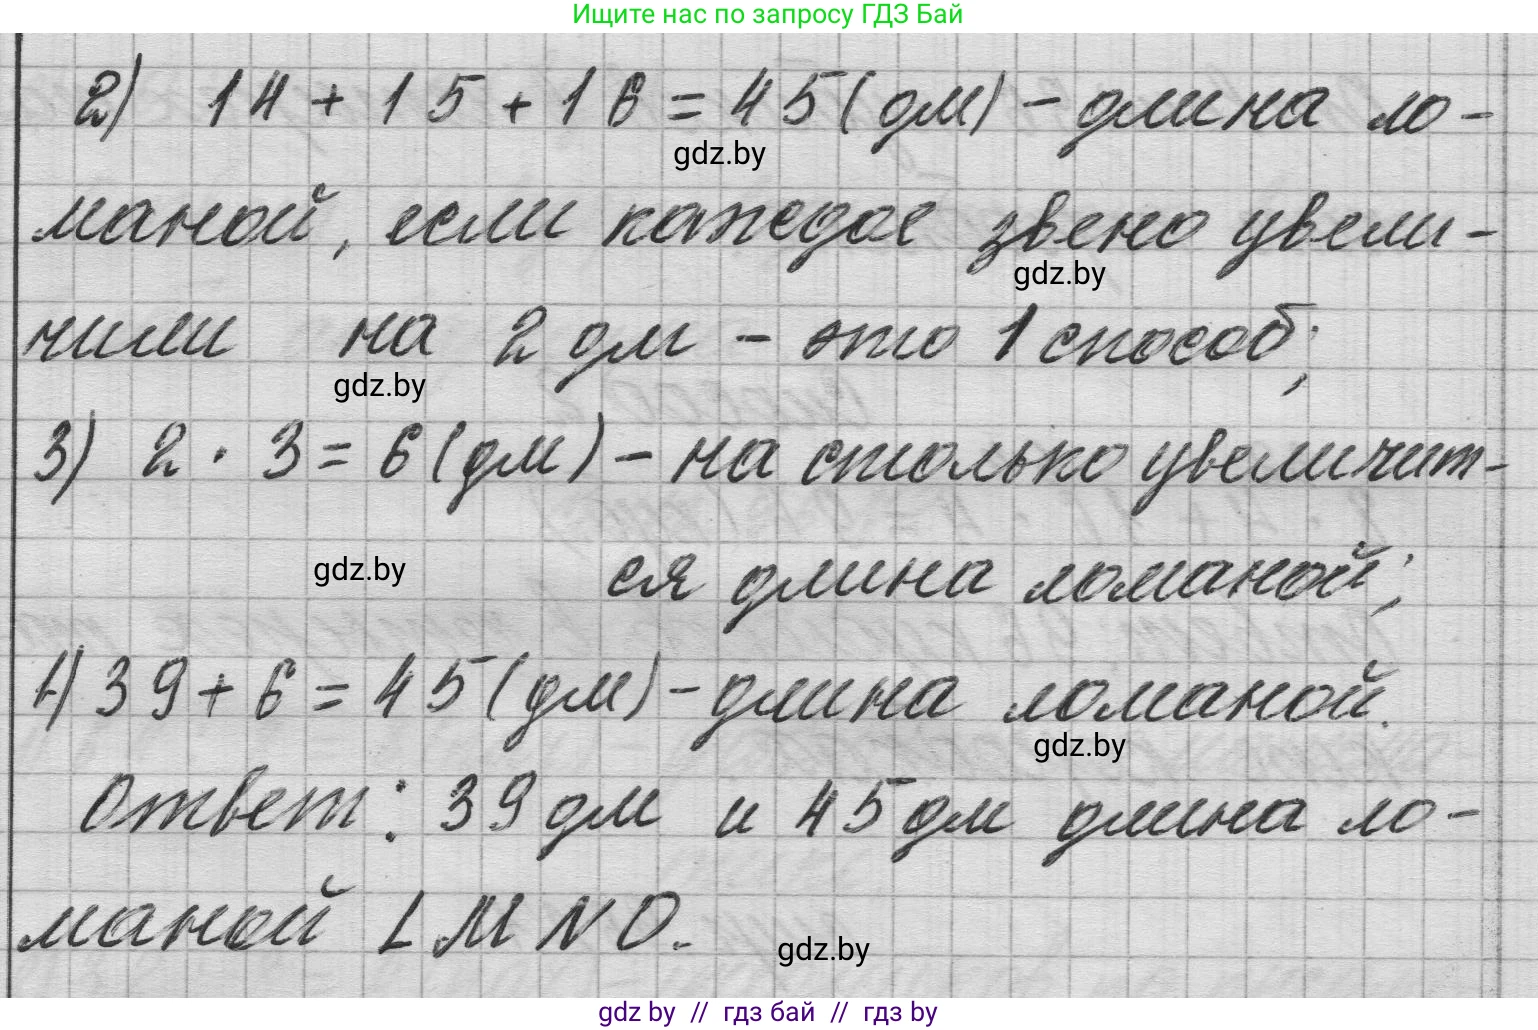 Ищите нас по запросу ГДЗ Бай
2) 14 + 15 + 16 = 45 (дм) - длина ло-
gdz.by
маной, если каждое звено увели-
gdz.by
чили на 2 дм - это 1 способ;
gdz.by
3) 2 · 3 = 6 (дм) - на столько увеличит-
gdz.by ся длина ломаной;
4) 39 + 6 = 45 (дм) - длина ломаной.
gdz.by
Ответ: 39 дм и 45 дм длина ло-
маной LMNO.
gdz.by
gdz by // гдз бай // гдз by